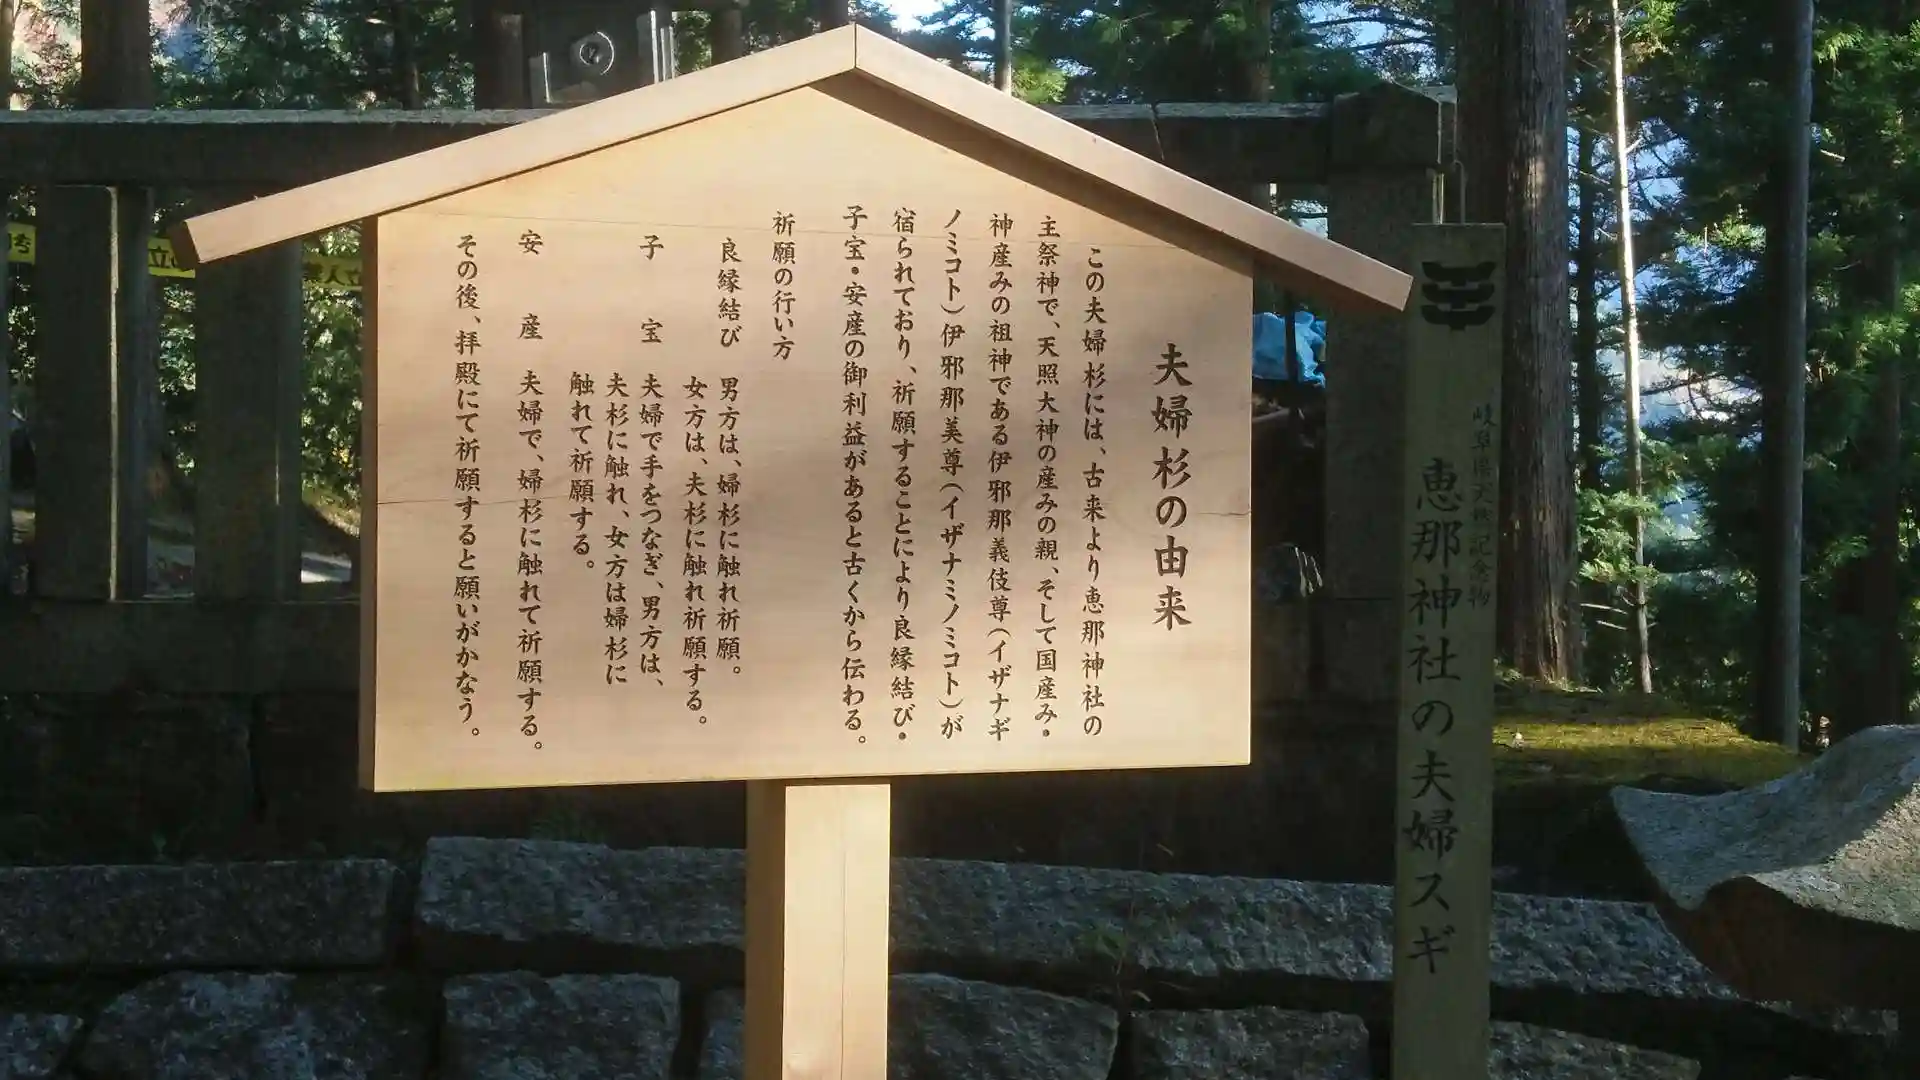 夫婦杉の由来
この夫婦杉には、古来より恵那神社の
主祭神で、天照大神の産みの親、そして国産み・
神産みの祖神である伊邪那義伎尊(イザナギ
ノミコト)伊邪那美尊(イザナミノミコト)が
宿られており、祈願することにより良縁結び・
子宝・安産の御利益があると古くから伝わる。
祈願の行い方
良縁結び 男方は、婦杉に触れ祈願。
女方は、夫杉に触れ祈願する。
子宝 夫婦で手をつなぎ、男方は、
夫杉に触れ、女方は婦杉に
触れて祈願する。
安産 夫婦で、婦杉に触れて祈願する。
その後、拝殿にて祈願すると願いがかなう。
岐阜県天然記念物
恵那神社の夫婦スギ